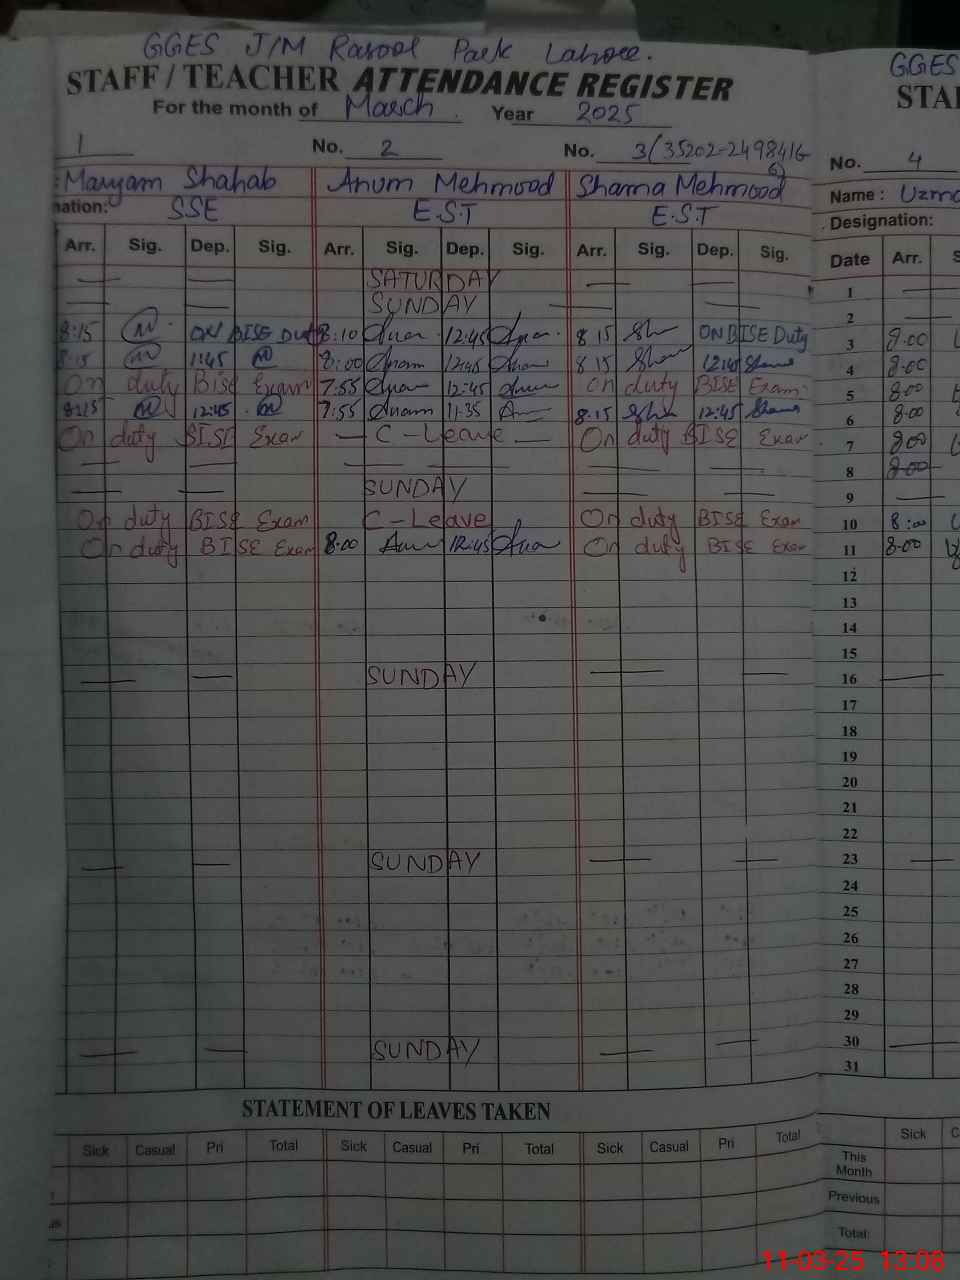 GGES J/M Rasool Park Lahore.
STAFF / TEACHER ATTENDANCE REGISTER
For the month of March. Year 2025
1 No. 2 No. 3 (35202-2498416-6)
: Maryam Shahab Anum Mehmood Shama Mehmood
nation: SSE E.S.T E.S.T
Arr. Sig. Dep. Sig. Arr. Sig. Dep. Sig. Arr. Sig. Dep. Sig.
SATURDAY
SUNDAY
8:15 ON BISE Duty 8:10 12:45 8 15 ON BISE Duty
8:15 11:45 8:00 Anam 12:45 8 15 12:45 Shama
On duty BISE Exam 7.55 12:45 On duty BISE Exam
8:15 12:45 7:55 Anam 11.35 8.15 12:45 Shama
On duty BISE Exam C-Leave On duty BISE Exam
SUNDAY
On duty BISE Exam C-Leave On duty BISE Exam
On duty BISE Exam 8.00 12:45 On duty BISE Exam
SUNDAY
SUNDAY
SUNDAY
STATEMENT OF LEAVES TAKEN
Sick Casual Pri Total Sick Casual Pri Total Sick Casual Pri Total
GGES
STA
No. 4
Name : Uzma
Designation:
Date Arr. S
1
2
3 8.00
4 8.00
5 8.00
6 8.00
7 8.00
8 8.00
9
10 8:00
11 8.00
12
13
14
15
16
17
18
19
20
21
22
23
24
25
26
27
28
29
30
31
Sick C
This
Month
Previous
Total:
11-03-25 13:08